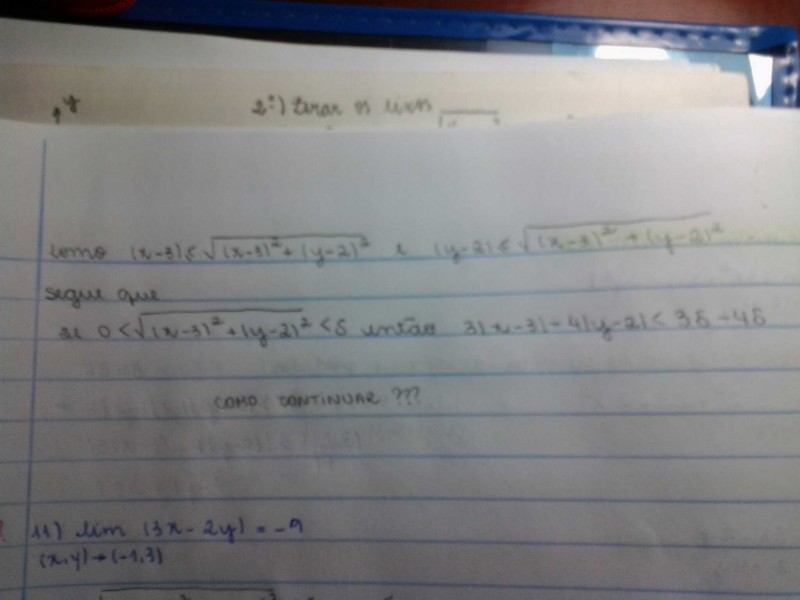 y
2º) tirar os eixos
como (x-3) ≤ √(x-3)²+(y-2)² e (y-2) ≤ √(x-3)²+(y-2)²
segue que
se 0 < √(x-3)²+(y-2)² < δ então 3|x-3|-4|y-2| < 3δ-4δ
COMO CONTINUAR ???
11) lim (3x-2y) = -9
(x,y)→(-1,3)